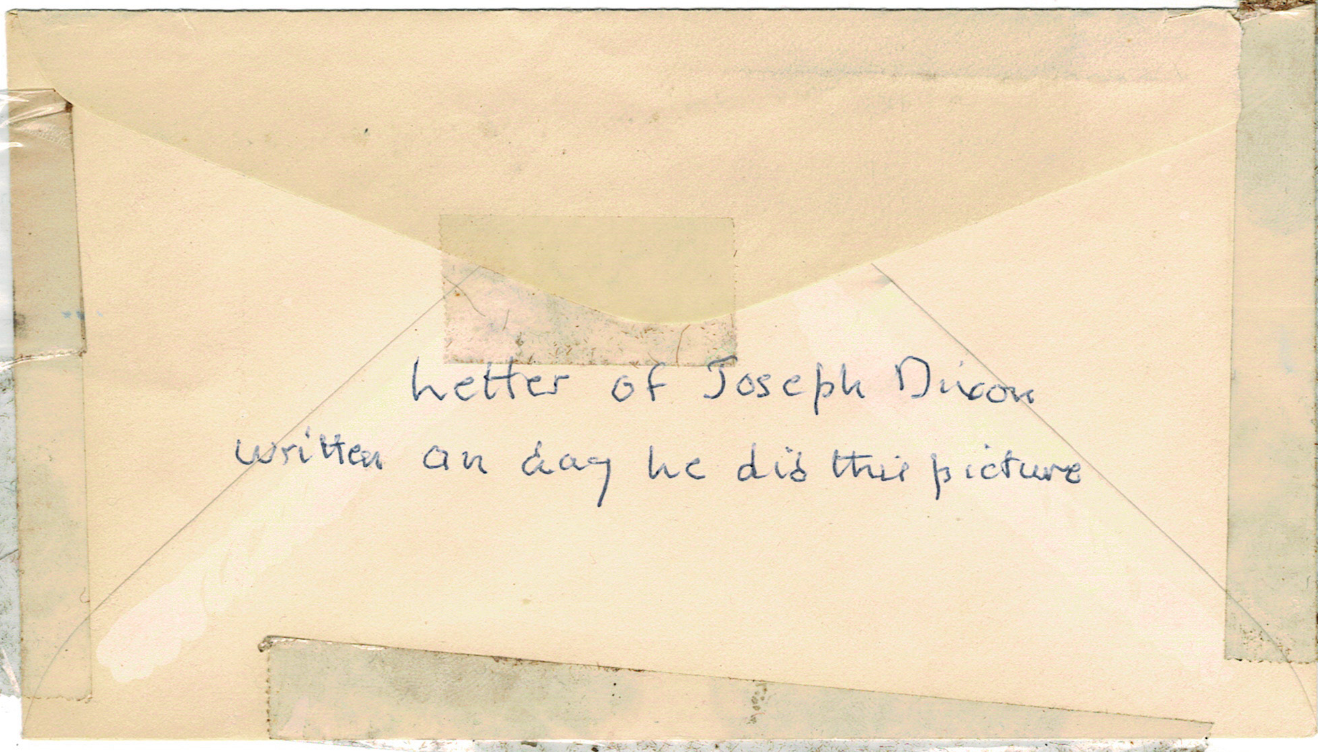 Letter of Joseph Dixon
written on day he did this picture